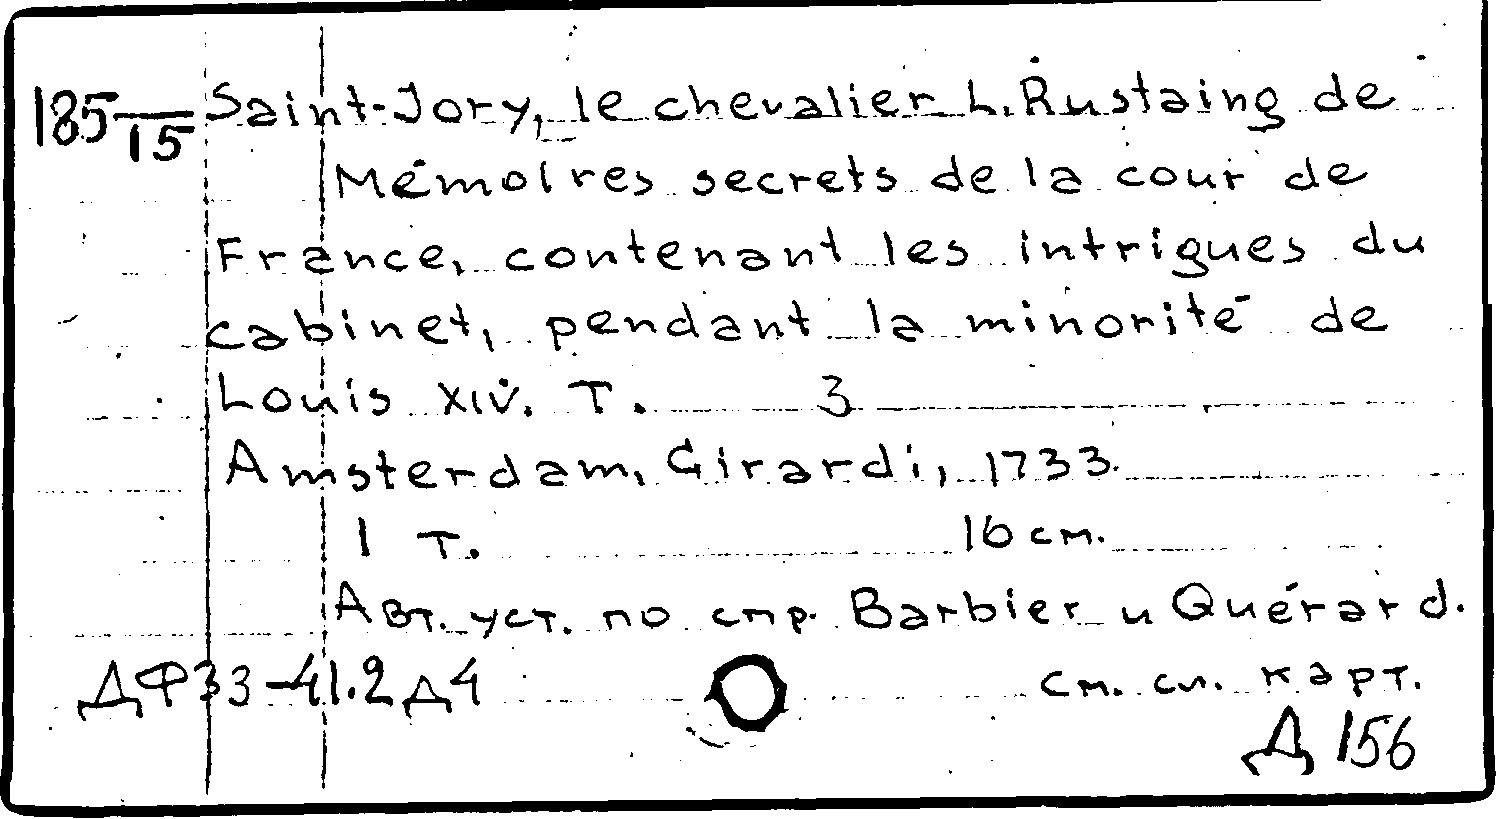 185/15 Saint-Jory, le chevalier L. Rustaing de
Mémoires secrets de la cour de
France, contenant les intrigues du
cabinet, pendant la minorité de
Louis XIV. T. 3
Amsterdam, Girardi, 1733.
1 т. 16 см.
Авт. уст. по спр. Barbier и Quérard.
ДФ33-41.2Д4 см. сл. карт.
Д 156